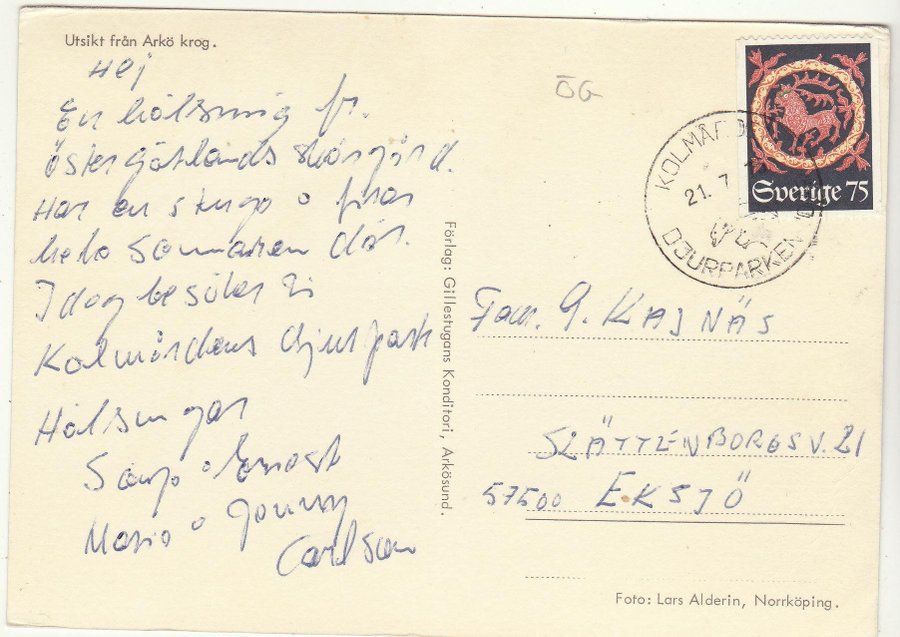 Utsikt från Arkö krog.
Hej
En hälsning fr.
Östergötlands skärgård.
Har en stuga o firar
hela sommaren där.
Idag besöker vi
Kolmårdens djurpark
Hälsningar
o Ernst
Maria o Jonny
Carlson
ÖG
Förlag: Gillestugans Konditori, Arkösund.
KOLMÅRDEN
21. 7
DJURPARKEN
Sverige 75
Fam. G. KAJNÄS
SLÄTTENBORGSV. 21
57500 EKSJÖ
Foto: Lars Alderin, Norrköping.